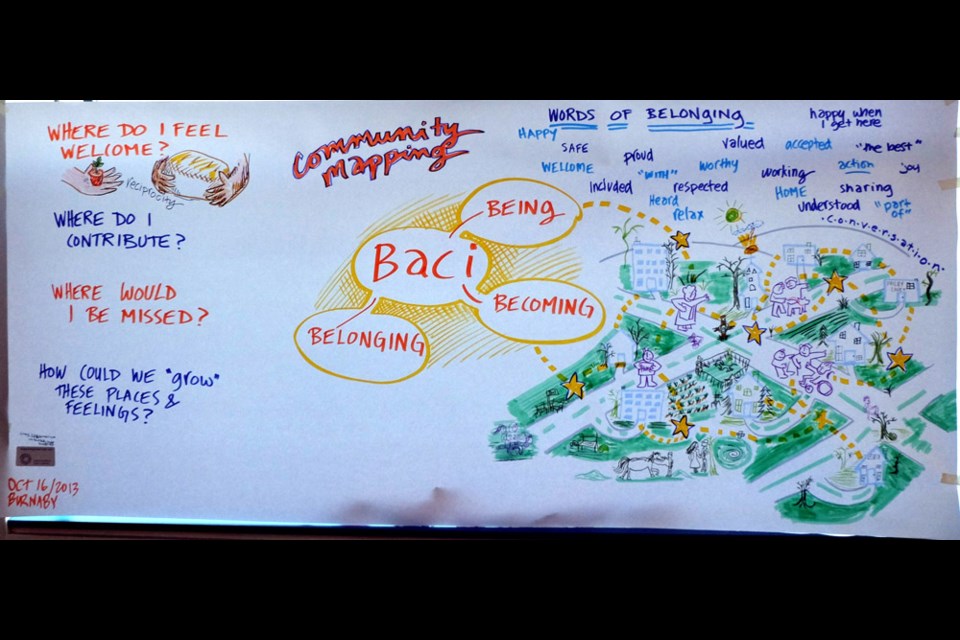 WHERE DO I FEEL
WELCOME?
reciprocing
WHERE DO I
CONTRIBUTE?
WHERE WOULD
I BE MISSED?
HOW COULD WE "grow"
THESE PLACES &
FEELINGS?
OCT 16/2013
BURNABY
Community
Mapping
BEING
Baci
BECOMING
BELONGING
WORDS OF BELONGING
HAPPY
SAFE
WELCOME
proud
"with"
included
Heard
relax
respected
worthy
valued
working
HOME
accepted
understood
happy when
I get here
"the best"
action
joy
sharing
"part
of"
conversation